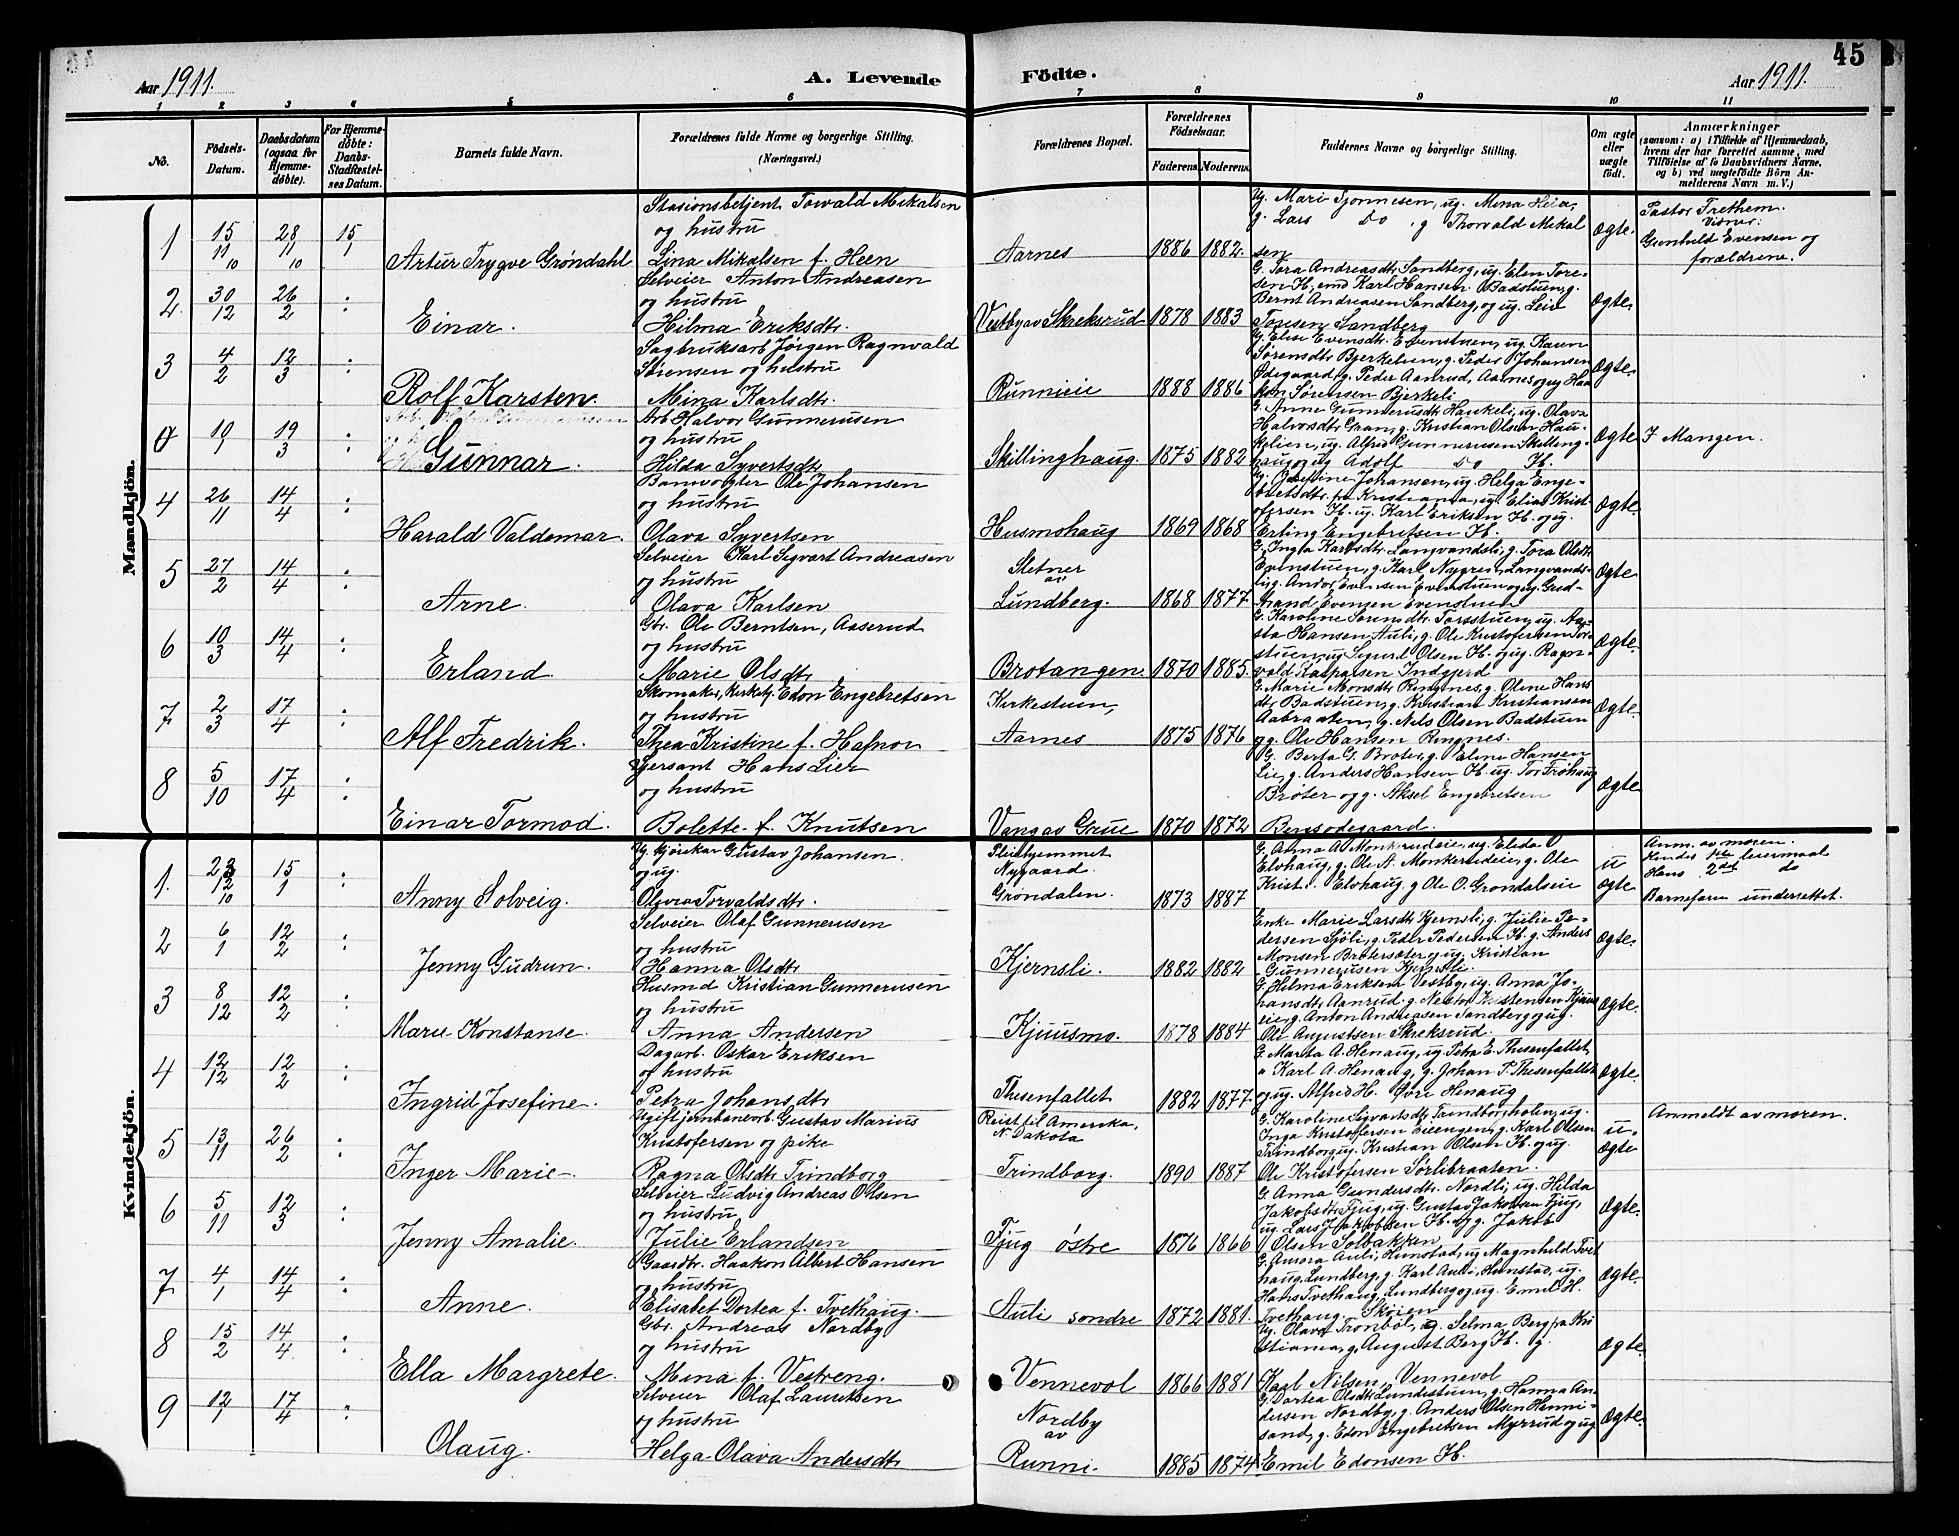 45
Aar 1911.
A. Levende Födte.
Aar 1911.
1 2 3 4 5 6 7 8 9 10 11
No.
Födsels-Datum.
Daabsdatum (ogsaa for Hjemmedøbte).
For Hjemmedøbte: Daabs-Stadfæstelses Datum.
Barnets fulde Navn.
Forældrenes fulde Navne og borgerlige Stilling. (Næringsvei.)
Forældrenes Bopæl.
Forældrenes Födselsaar.
Faderens. Moderens.
Faddernes Navne og borgerlige Stilling.
Om ægte eller uægte født.
Anmærkninger
(saasom: a) i Tilfælde af Hjemmedaab, hvem der har forrettet samme, med Tilföielse af to Daabsvidners Navne, og b) ved uægtefödte Börn Anmelderens Navn m. V.)
Mandkjön.
1 15/11 10 28/11 10 15/1
Artur Trygve Grøndahl
Stasionsbetjent Torvald Mikalsen
og hustru
Lina Mikalsen f. Heen
Aarnes 1886 1882
Ug. Mari Sjonnesen, ug. Mina Heia,
g. Lars Do, g Thorvald Mikal
sen
Ægte.
Pastor Trethem.
Vidner:
Gunhild Evensen og
forældrene.
2 30/12 26/2 :
Einar.
Selveier Anton Andreasen
og hustru
Hilma Eriksdtr.
Vestby av Skreksrud 1878 1883
G. Tora Andreasdtr. Sandberg, ug. Elen Tore-
sen H., emd Karl Hansen Badstuen, g.
Bernt Andreasen Sandberg, og ug. Leiv
Toresen Sandberg
Ægte.
3 4/2 12/3 :
Rolf Karsten.
Sagbruksarb Jörgen Ragnvald
Sörensen og hustru
Mina Karlsdtr.
Runnieie 1888 1886
G. Elise Evensdtr. Evenstuen, ug. Karen
Sørensdtr Bjerkelien, g. Peder Johansen
Ødegaard, g. Peder Aanrud, Aarnes og ug Haa
kon Sørensen Bjerkeli
Ægte.
0 10/1 19/3 :
Gunnar.
Arb Halvor Gunnerusen
og hustru
Hilda Syvertsdtr
Skillinghaug. 1875 1882
G. Anne Gunnerusdtr Haukeli, ug. Olava
Halvorsdtr Gran, g. Kristian Olsen Hau-
kelien, ug. Alfred Gunnerusen Skilling-
haug og ug Adolf Do H.
Ægte
I Mangen.
4 26/11 14/4 :
Harald Valdemar.
Banevogter Ole Johansen
og hustru
Olava Syvertsen
Husmohaug 1869 1868
Ug. Josefine Johansen, ug. Helga Enge-
bretsdtr. fra Kristiania, ug. Elias Krist
ofersen H. ug. Karl Eriksen H. og ug.
Erling Engebretsen H.
Ægte.
5 27/2 14/4 :
Arne.
Selveier Karl Sigvart Andreasen
og hustru
Olava Karlsen
Sletner
av
Lundberg. 1868 1877.
G. Inga Karlsdtr. Langvandsli, g. Tora Olsdtr
Evenstuen, g. Karl Nygren, Langvands-
li, g. Andor Evensen Evenstuen og ug. Gud-
brand Evensen Evenstuen
Ægte
6 10/3 14/4 :
Erland
Gbr. Ole Berntsen, Aaserud
og hustru
Marie Olsdtr
Brotangen. 1870 1885.
G. Karoline Sorensdtr. Torsstuen, ug. Aag-
sta Hansen Auli, g. Ole Kristofersen Tor-
stuen, ug Sigurd Olsen H. og ug. Ragn-
vald Kaspersen Indgjerd
Ægte.
7 2/3 17/4 :
Alf Fredrik.
Skomaker, Kirketj. Edon Engebretsen
og hustru
Thea Kristine f. Hafnor
Kirkestuen,
Aarnes 1875 1876
G. Marie Monsdtr Ringnes, g. Oline Hans
dtr Badstuen, g. Kristian Kristiansen
Aabraaten, g. Nels Olsen Badstuen
og g. Ole Hansen Ringnes.
Ægte.
8 5/10 17/4 :
Einar Tormod.
Sersant Hans Lier
og hustru
Bolette f. Knutsen
Vang av Grue 1870 1872
G. Berta G. Brøter, g. Eline Hansen
Lie, g. Anders Hansen H. ug. Tor Frøhaug
Brøter og g. Aksel Engebretsen
Bergsodegaard.
Ægte
Kvindekjön.
1. 23/12 10 15/1 :
Anny Solveig.
Ug. kjørekar Gustav Johansen.
og ug.
Olivia Torvaldsdtr.
Pleiehjemmet
Nygaard.
Grøndalen. 1873 1887
G. Anna A Monkerudeie, ug. Elida O
Elvhaug, g. Ole A. Monkerudeie, g. Ole
Krist. Elvhaug. g Ole O. Grondalseie
u
ægte
Anm. av moren.
Hendes 1ste leiermaal
Hans 2det do
Barnefaren underrettet.
2 6/1 12/2 :
Jenny Gudrun.
Selveier Olaf Gunnerusen
og hustru
Hanna Olsdtr
Kjernsli. 1882 1882
Enke Marie Larsdtr Kjernsli, g. Julie Pe-
dersen Sjöli, g. Peder Pedersen H. g. Anders
Monsen Brøtersæter og ug. Kristian
Gunnerusen Kjernsli.
Ægte.
3 8/12 12/2 :
Marie Konstanse.
Husmd Kristian Gunnerusen
og hustru
Anna Andersen
Kjuusmo. 1878 1884
G. Hilma Eriksen Vestby, ug. Anna Jo-
hansdtr Aanrud. g. Nestor Kristensen Kjuus
eie, g. Anton Andreasen Sandberg og ug.
Ole Augustsen Skreksrud.
Ægte.
4 12/12 12/2 :
Ingrid Josefine.
Dagarb. Oskar Eriksen
og hustru
Petra Johansdtr
Thesenfallet 1882 1877.
G. Marta A. Henaug, ug. Petra E. Thesenfallet,
" Karl A. Henaug, g. Johan P. Thesenfallet
og ug. Alfred H. Øvre Henaug
Ægte.
5 13/11 26/2 :
Inger Marie -
Ugift jernbanearb. Gustav Marius
Kristofersen og pike
Ragna Olsdtr Trindborg
Reist til Amerika,
N. Dakota
Trindborg. 1890 1887
G. Karoline Sigvartsdtr Trindborgholen, ug.
Inga Kristoffersen Eisengen, g. Karl Olsen
Trindborg, ug. Kristian Olsen H. og ug.
Ole Kristofersen Sørlibraaten.
u-
ægte
Anmeldt av moren.
6 5/11 12/3 :
Jenny Amalie.
Selveier Ludvig Andreas Olsen
og hustru
Julie Erlandsen
Fjug østre 1876 1866
G. Anna Gundersdtr. Nordli, ug. Hilda
Jakobsdtr Fjug, ug. Gustav Jakobsen Fjug,
ug. Lars Jakobsen H. og g. Jakob
Olsen Solbakken
Ægte.
7 4/1 14/4 :
Anne.
Gaardbr. Haakon Albert Hansen
og hustru
Elisabet Dortea f. Tvethaug.
Auli sondre 1872 1881.
G. Aurora Auli, Hunstad, ug Magnhild Tvet
haug, Lundberg, g. Karl Auli, Hunstad, ug.
Hans Tvethaug, Lundberg og ug. Emil H.
Tvethaug. Skøien
Ægte.
8 15/2 14/4 :
Ella Margrete.
Gbr. Andreas Nordby
og hustru
Mina f. Vestreng.
Vennevol 1866 1881
Ug. Olava Tronbøl, g. Selma Berg fra Kri
stiania, g. August Berg H. g.
Karl Nilsen, Vennevol
Ægte.
9 12/1 17/4 "
Olaug.
Selveier Olaf Lauritsen
og hustru
Helga Olava Andersdtr
Nordby
av
Runni. 1885 1874
G. Dortea Olsdtr Lundestuen, g. Hanna An-
dersen Nordby, g. Anders Olsen Henni-
sand, g. Edon Engebretsen Myrrud og ug
Emil Edonsen H.
Ægte.